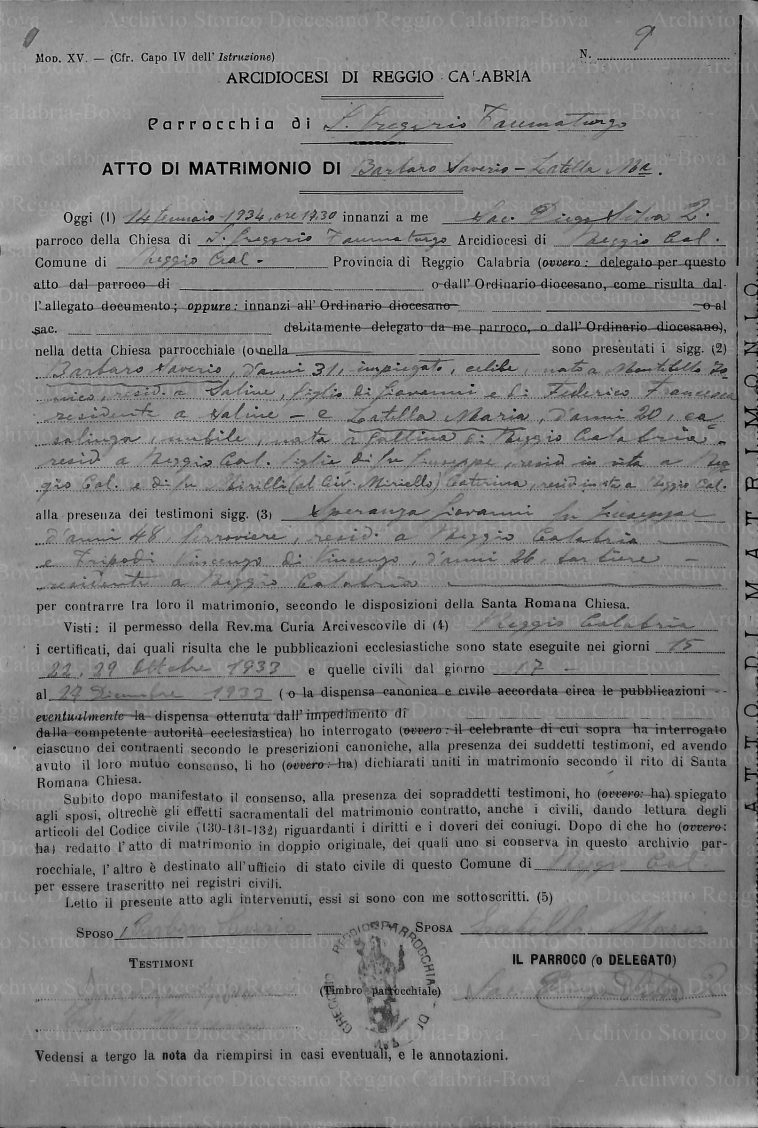 Mod. XV. — (Cfr. Capo IV dell' Istruzione)
N. 9
ARCIDIOCESI DI REGGIO CALABRIA
Parrocchia di S. Gregorio Taumaturgo
ATTO DI MATRIMONIO DI Barbaro Saverio - Latella Ma.
Oggi (1) 14 Gennaio 1934, ore 17.30 innanzi a me Sac. Diego Silva P.
parroco della Chiesa di S. Gregorio Taumaturgo Arcidiocesi di Reggio Cal.
Comune di Reggio Cal. - Provincia di Reggio Calabria (ovvero: delegato per questo
atto dal parroco di o dall' Ordinario diocesano, come risulta dal-
l'allegato documento; oppure: innanzi all' Ordinario diocesano o al
sac. debitamente delegato da me parroco, o dall' Ordinario diocesano),
nella detta Chiesa parrocchiale (o nella sono presentati i sigg. (2)
Barbaro Saverio, d'anni 31, impiegato, celibe, nato a Montebello Jo-
nico, resid. a Saline, figlio di Giovanni e di Federico Francesca
residente a Saline - e Latella Maria, d'anni 20, ca-
salinga, nubile, nata a Gallina di Reggio Calabria
resid a Reggio Cal. figlia di fu Giuseppe, resid in vita a Reg-
gio Cal. e di fu Mirilli (al Civ. Miriello) Caterina, resid in vita a Reggio Cal.
alla presenza dei testimoni sigg. (3) Speranza Giovanni fu Giuseppe
d'anni 48 ferroviere, resid. a Reggio Calabria
e Tripodi Vincenzo di Vincenzo, d'anni 26, sartiere -
residente a Reggio Calabria
per contrarre tra loro il matrimonio, secondo le disposizioni della Santa Romana Chiesa.
Visti: il permesso della Rev.ma Curia Arcivescovile di (4) Reggio Calabria
i certificati, dai quali risulta che le pubblicazioni ecclesiastiche sono state eseguite nei giorni 15
22, 29 Ottobre 1933 e quelle civili dal giorno 17 -
al 27 Dicembre 1933 (o la dispensa canonica e civile accordata circa le pubblicazioni
eventualmente la dispensa ottenuta dall' impedimento di
dalla competente autorità ecclesiastica) ho interrogato (ovvero: il celebrante di cui sopra ha interrogato
ciascuno dei contraenti secondo le prescrizioni canoniche, alla presenza dei suddetti testimoni, ed avendo
avuto il loro mutuo consenso, li ho (ovvero: ha) dichiarati uniti in matrimonio secondo il rito di Santa
Romana Chiesa.
Subito dopo manifestato il consenso, alla presenza dei sopraddetti testimoni, ho (ovvero: ha) spiegato
agli sposi, oltrechè gli effetti sacramentali del matrimonio contratto, anche i civili, dando lettura degli
articoli del Codice civile (130-131-132) riguardanti i diritti e i doveri dei coniugi. Dopo di che ho (ovvero:
ha) redatto l'atto di matrimonio in doppio originale, dei quali uno si conserva in questo archivio par-
rocchiale, l'altro è destinato all'ufficio di stato civile di questo Comune di Reggio Cal.
per essere trascritto nei registri civili.
Letto il presente atto agli intervenuti, essi si sono con me sottoscritti. (5)
Sposo Barbaro Saverio Sposa Latella Maria
Testimoni
IL PARROCO (o DELEGATO)
(Timbro parrocchiale)
Sac. Diego Silva P.
Vedensi a tergo la nota da riempirsi in casi eventuali, e le annotazioni.
ATTO DI MATRIMONIO
Archivio Storico Diocesano Reggio Calabria-Bova